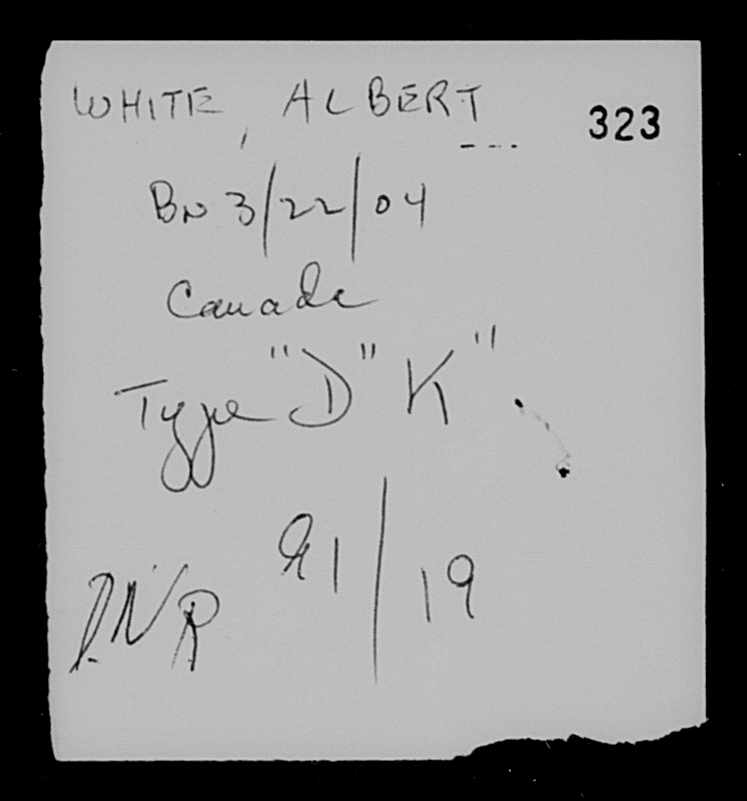 WHITE, ALBERT
323
Bn 3/22/04
Canada
Type "D" K"
91/19
DNR